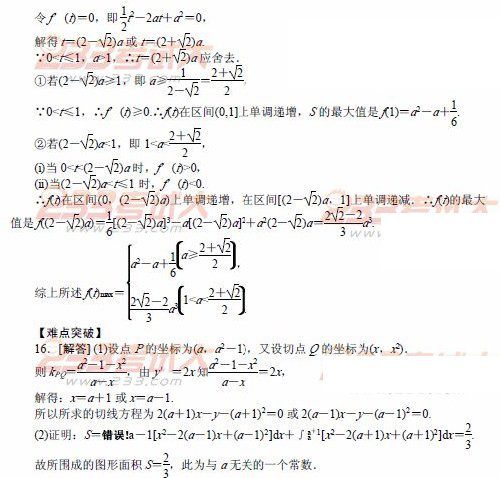 令f′(t)=0，即1/2t²-2at+a²=0，
解得t=(2-√2)a或t=(2+√2)a.
∵0<t≤1，a>1，∴t=(2+√2)a应舍去．
①若(2-√2)a≥1，即a≥1/(2-√2)=(2+√2)/2.
∵0<t≤1，∴f′(t)≥0.∴f(t)在区间(0,1]上单调递增，S的最大值是f(1)=a²-a+1/6.
②若(2-√2)a<1，即1<a<(2+√2)/2，
(i)当0<t<(2-√2)a时，f′(t)>0，
(ii)当(2-√2)a<t≤1时，f′(t)<0.
∴f(t)在区间(0，(2-√2)a)上单调递增，在区间[(2-√2)a，1]上单调递减．∴f(t)的最大
值是f((2-√2)a)=1/6[(2-√2)a]³-a[(2-√2)a]²+a²(2-√2)a=(2√2-2)/3a³.
综上所述f(t)max={a²-a+1/6(a≥(2+√2)/2)，
(2√2-2)/3a³(1<a<(2+√2)/2).
【难点突破】
16．[解答] (1)设点P的坐标为(a，a²-1)，又设切点Q的坐标为(x，x²)．
则kPQ=(a²-1-x²)/(a-x)，由y′=2x知(a²-1-x²)/(a-x)=2x，
解得：x=a+1或x=a-1.
所以所求的切线方程为2(a+1)x-y-(a+1)²=0或2(a-1)x-y-(a-1)²=0.
(2)证明：S=错误!a-1[x²-2(a-1)x+(a-1)²]dx+∫ₐᵃ⁺¹[x²-2(a+1)x+(a+1)²]dx=2/3.
故所围成的图形面积S=2/3，此为与a无关的一个常数．
233考试大
www.233.com